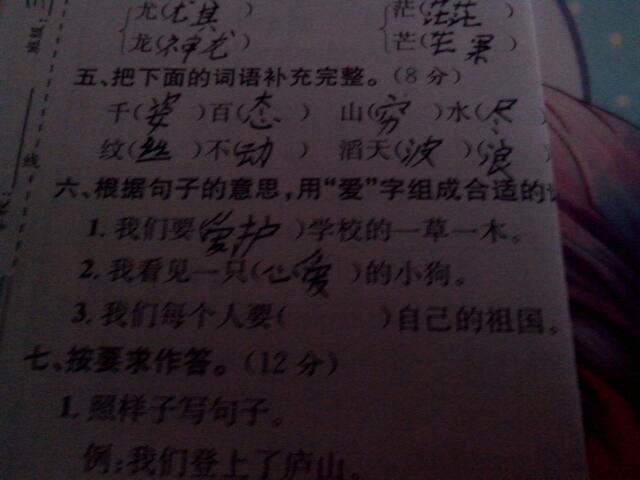 尤(尤其) 茫(茫茫)
龙(神龙) 芒(芒果)
五、把下面的词语补充完整。(8分)
千(姿)百(态) 山(穷)水(尽
纹(丝)不(动) 滔天(波)(浪)
六、根据句子的意思,用“爱”字组成合适的
1. 我们要(爱护)学校的一草一木。
2. 我看见一只(心爱)的小狗。
3. 我们每个人要( )自己的祖国。
七、按要求作答。(12分)
1. 照样子写句子。
例:我们登上了庐山。
线